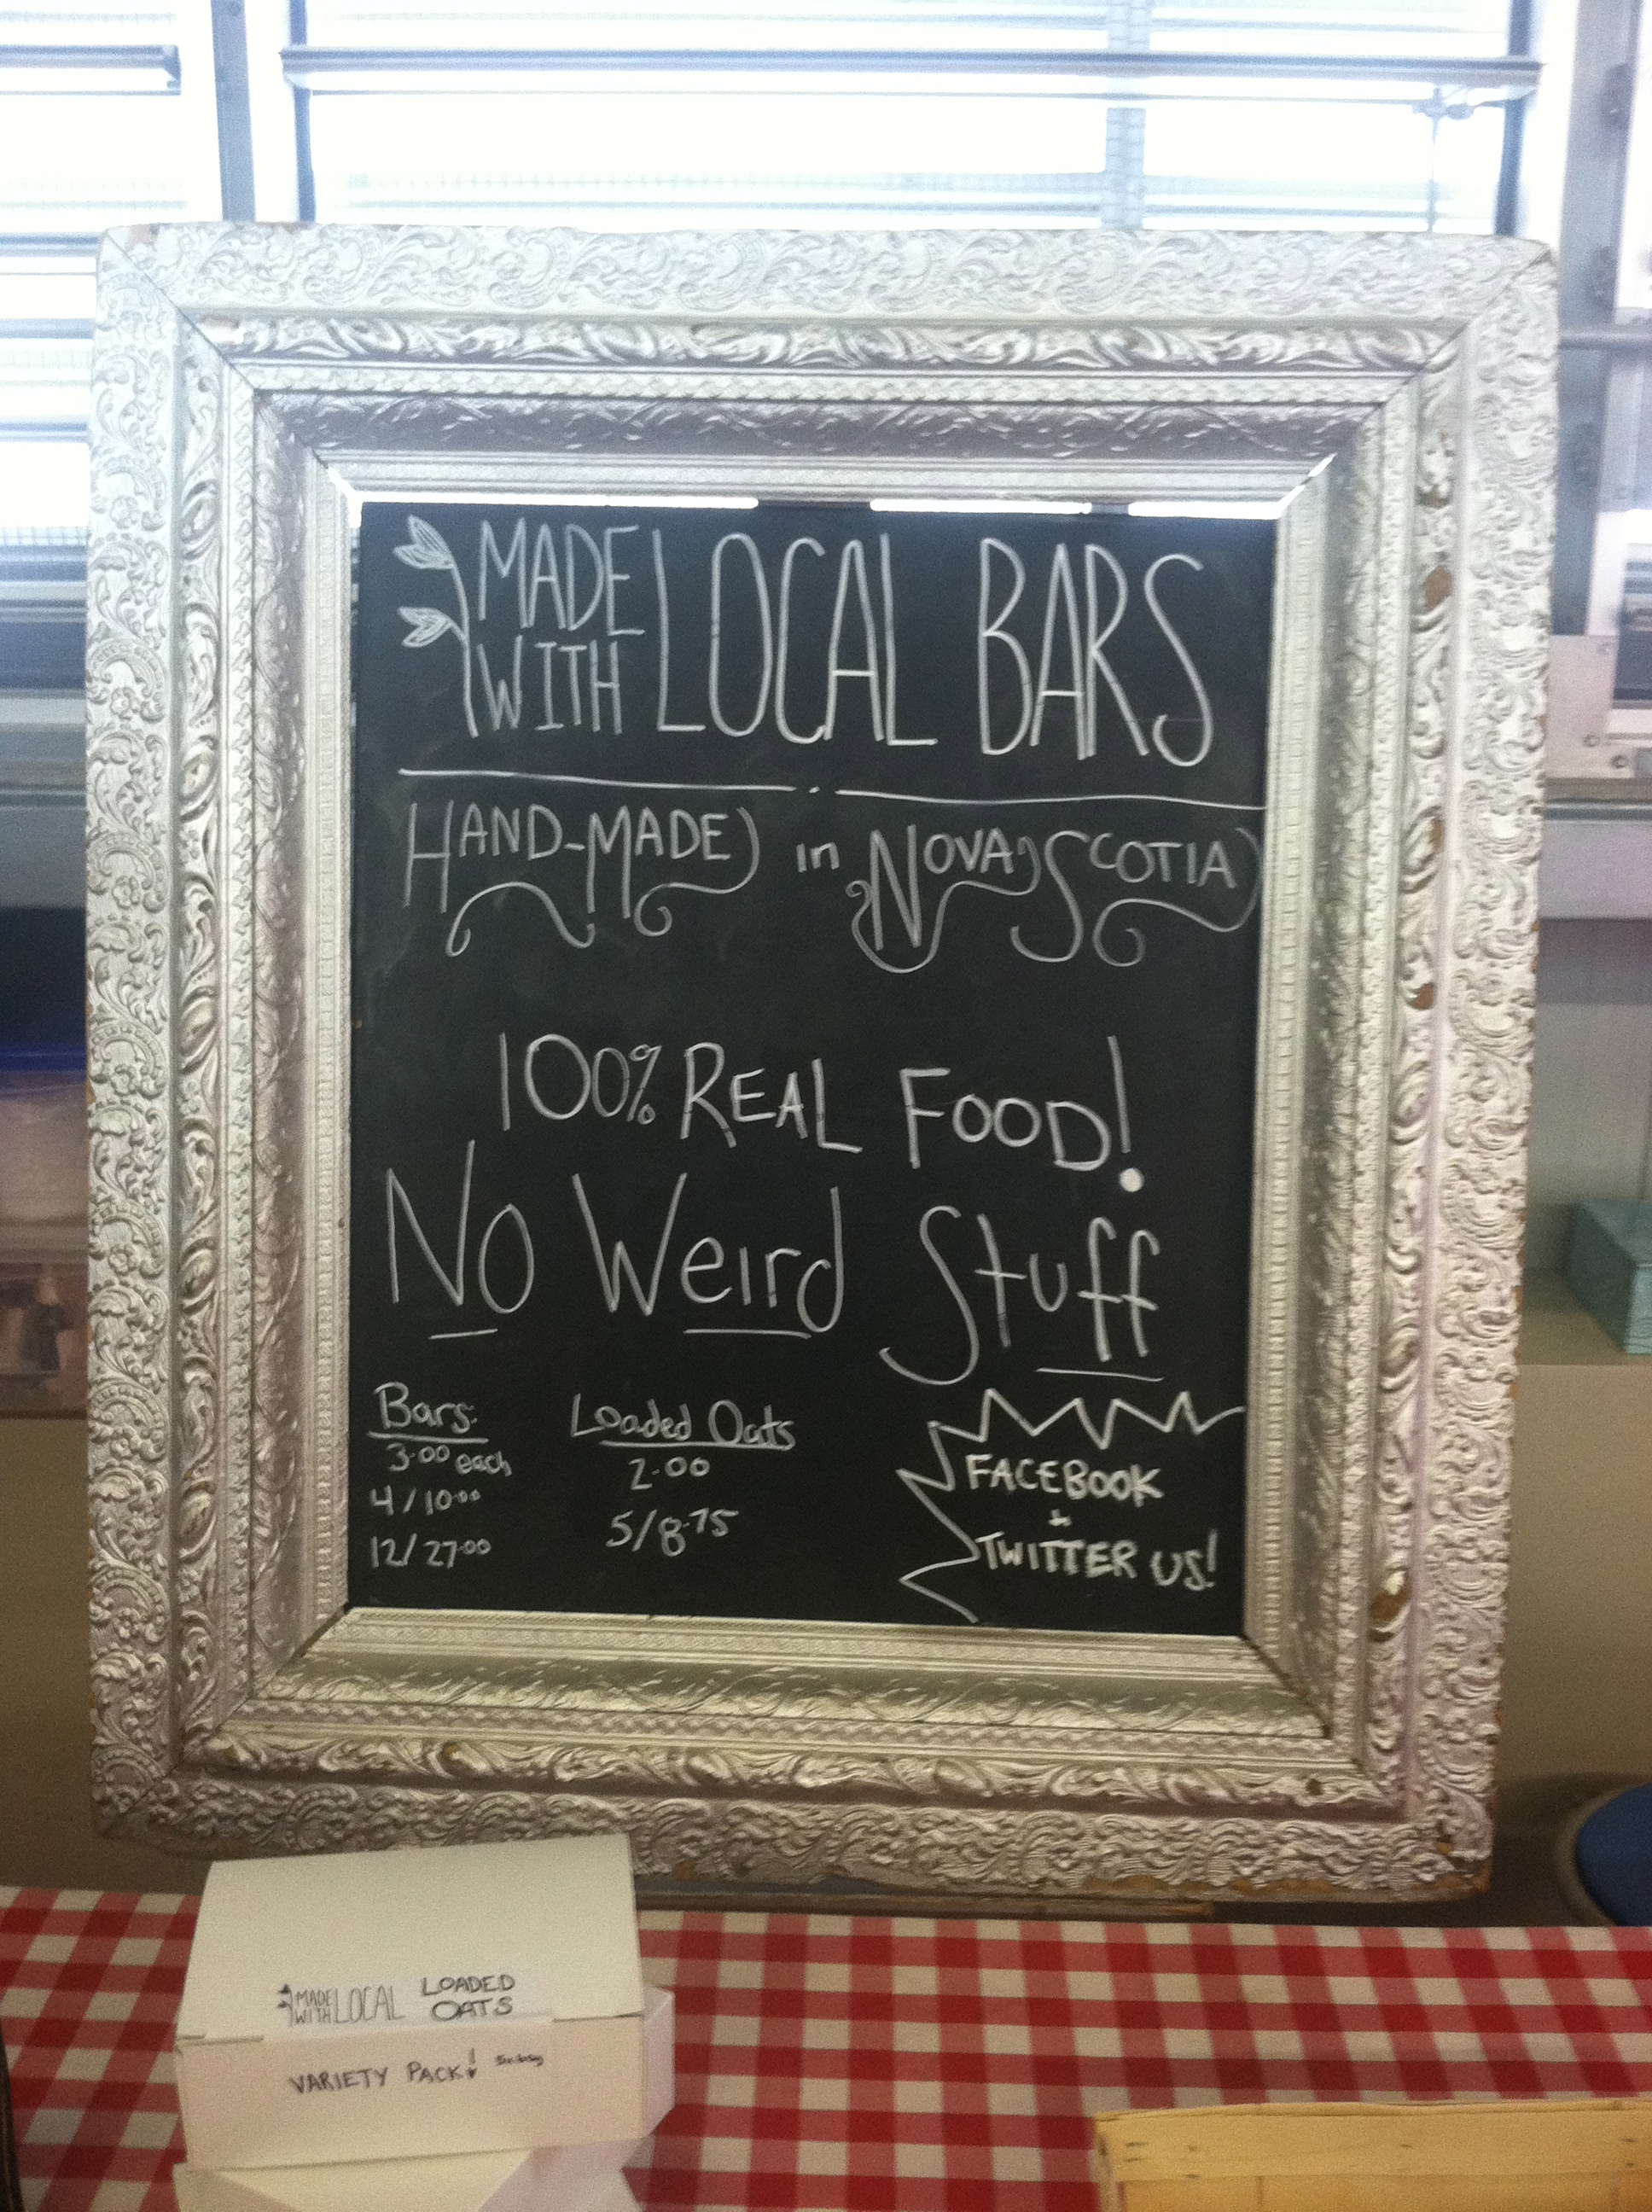 MADE WITH LOCAL BARS
HAND-MADE in NOVA SCOTIA
100% REAL FOOD!
No Weird Stuff
Bars:
3.00 each
4/10.00
12/27.00
Loaded Oats
2.00
5/8.75
FACEBOOK
+
TWITTER US!
MADE WITH LOCAL LOADED
OATS
VARIETY PACK!